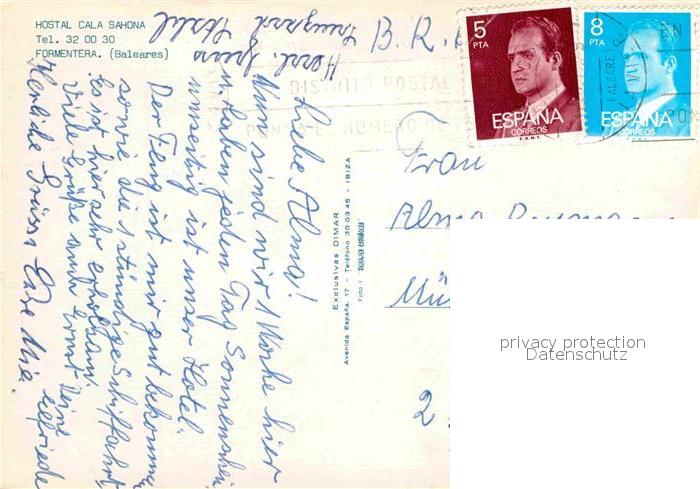 HOSTAL CALA SAHONA
Tel. 32 00 30
FORMENTERA. (Baleares)
5
PTA
ESPAÑA
CORREOS
F.N.M.T.
8
PTA
ESPAÑA
CORREOS
DISTRITO POSTAL
BALEARES
B. R.
Liebe Alma!
Nun sind wir 1 Woche hier
u. haben jeden Tag Sonnenschein
umseitig ist unser Hotel.
Der Flug ist mir gut bekommen
sowie die 1 stündige Schiffahrt
Es ist hier sehr erholsam.
Viele Grüße auch Ernst Deine
Elfriede
Herzliche Grüsse Eure Mia.
Herzl.
Exclusivas DIMAR
Avenida España, 17 - Teléfono 30 03 45 - IBIZA
Frau
Alma
Mü
2
privacy protection
Datenschutz